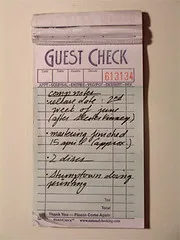 GUEST CHECK
613134
comp notes
• release date: 2nd
week of june
(after
• mastering finished
15 april (approx.)
• 2 discs
• Stumptown doing
printing
Tax
Total
Thank You — Please Come Again